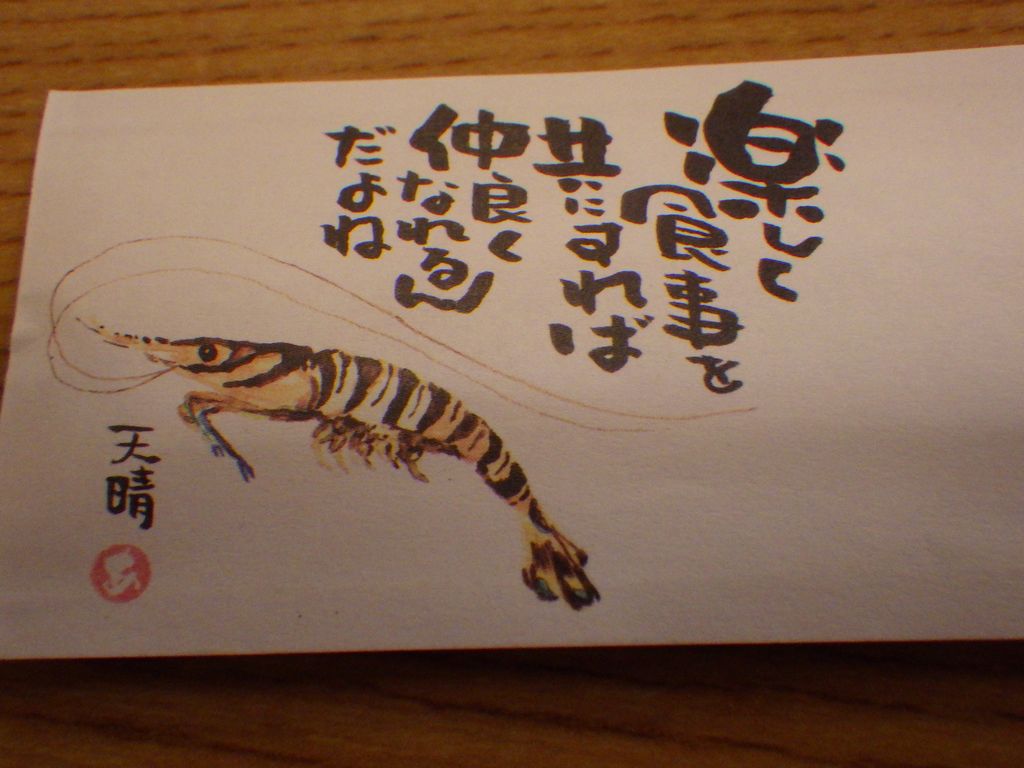 楽して
食事を
共にすれば
仲良く
なれるん
だよね
天晴